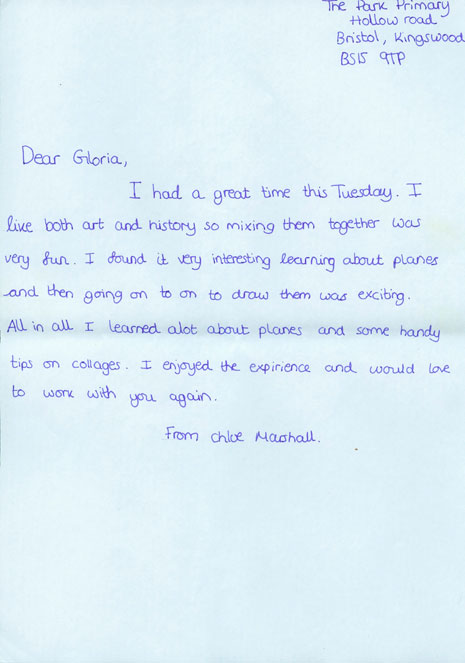 The Park Primary
Hollow road
Bristol, Kingswood
BS15 9TP
Dear Gloria,
I had a great time this Tuesday. I
like both art and history so mixing them together was
very fun. I found it very interesting learning about planes
and then going on to on to draw them was exciting.
All in all I learned alot about planes and some handy
tips on collages. I enjoyed the expirience and would love
to work with you again.
From Chloe Marshall.